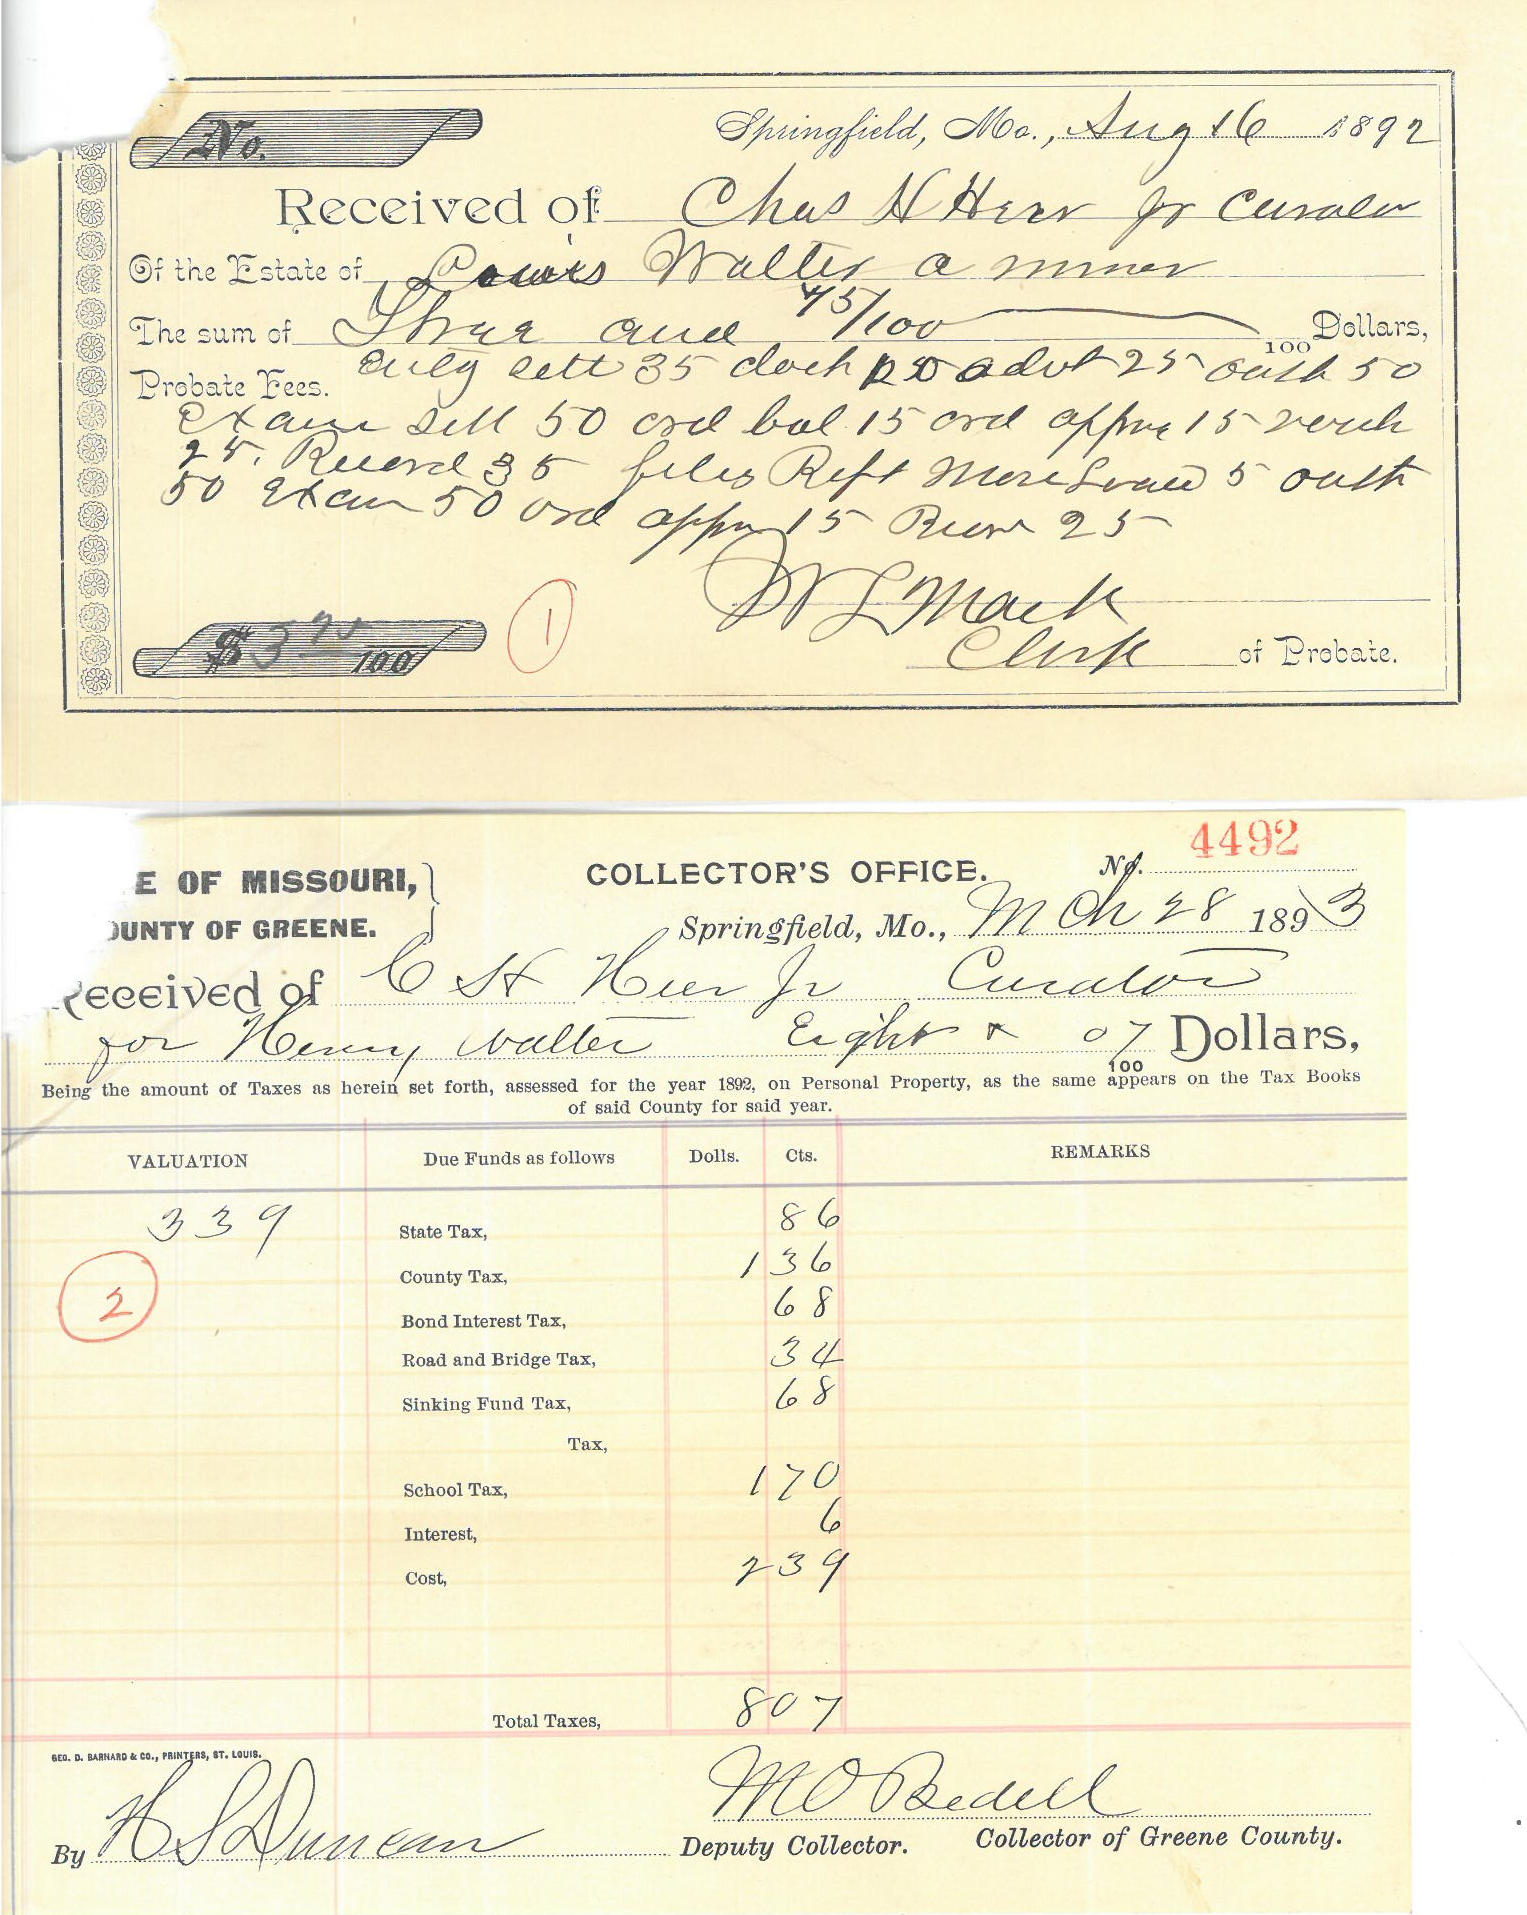 No.
Springfield, Mo., Aug 16 1892
Received of Chas H Heer Jr Curator
Of the Estate of Louis Walter a minor
The sum of Three and 75/100 100 Dollars,
Probate Fees. sett 35 dock advt 25 oath 50
Exam sett 50 ord bal 15 ord appve 15 vouch
25. Record 35 files Rept 5 oath
50 Exam 50 ord appv 15 25
W L Mack
Clerk of Probate.
$ 3 100
1
E OF MISSOURI, COLLECTOR'S OFFICE. No. 4492
OUNTY OF GREENE. Springfield, Mo., Mch 28 1893
Received of C H Heer Jr Curator
for Henry Walter Eight & 07/100 Dollars,
Being the amount of Taxes as herein set forth, assessed for the year 1892, on Personal Property, as the same appears on the Tax Books
of said County for said year.
VALUATION Due Funds as follows Dolls. Cts. REMARKS
339 State Tax, 86
County Tax, 1 36
2 Bond Interest Tax, 68
Road and Bridge Tax, 34
Sinking Fund Tax, 68
Tax,
School Tax, 1 70
Interest, 6
Cost, 2 39
Total Taxes, 8 07
GEO. D. BARNARD & CO., PRINTERS, ST. LOUIS.
M O Bedell
By H S Duncan Deputy Collector. Collector of Greene County.